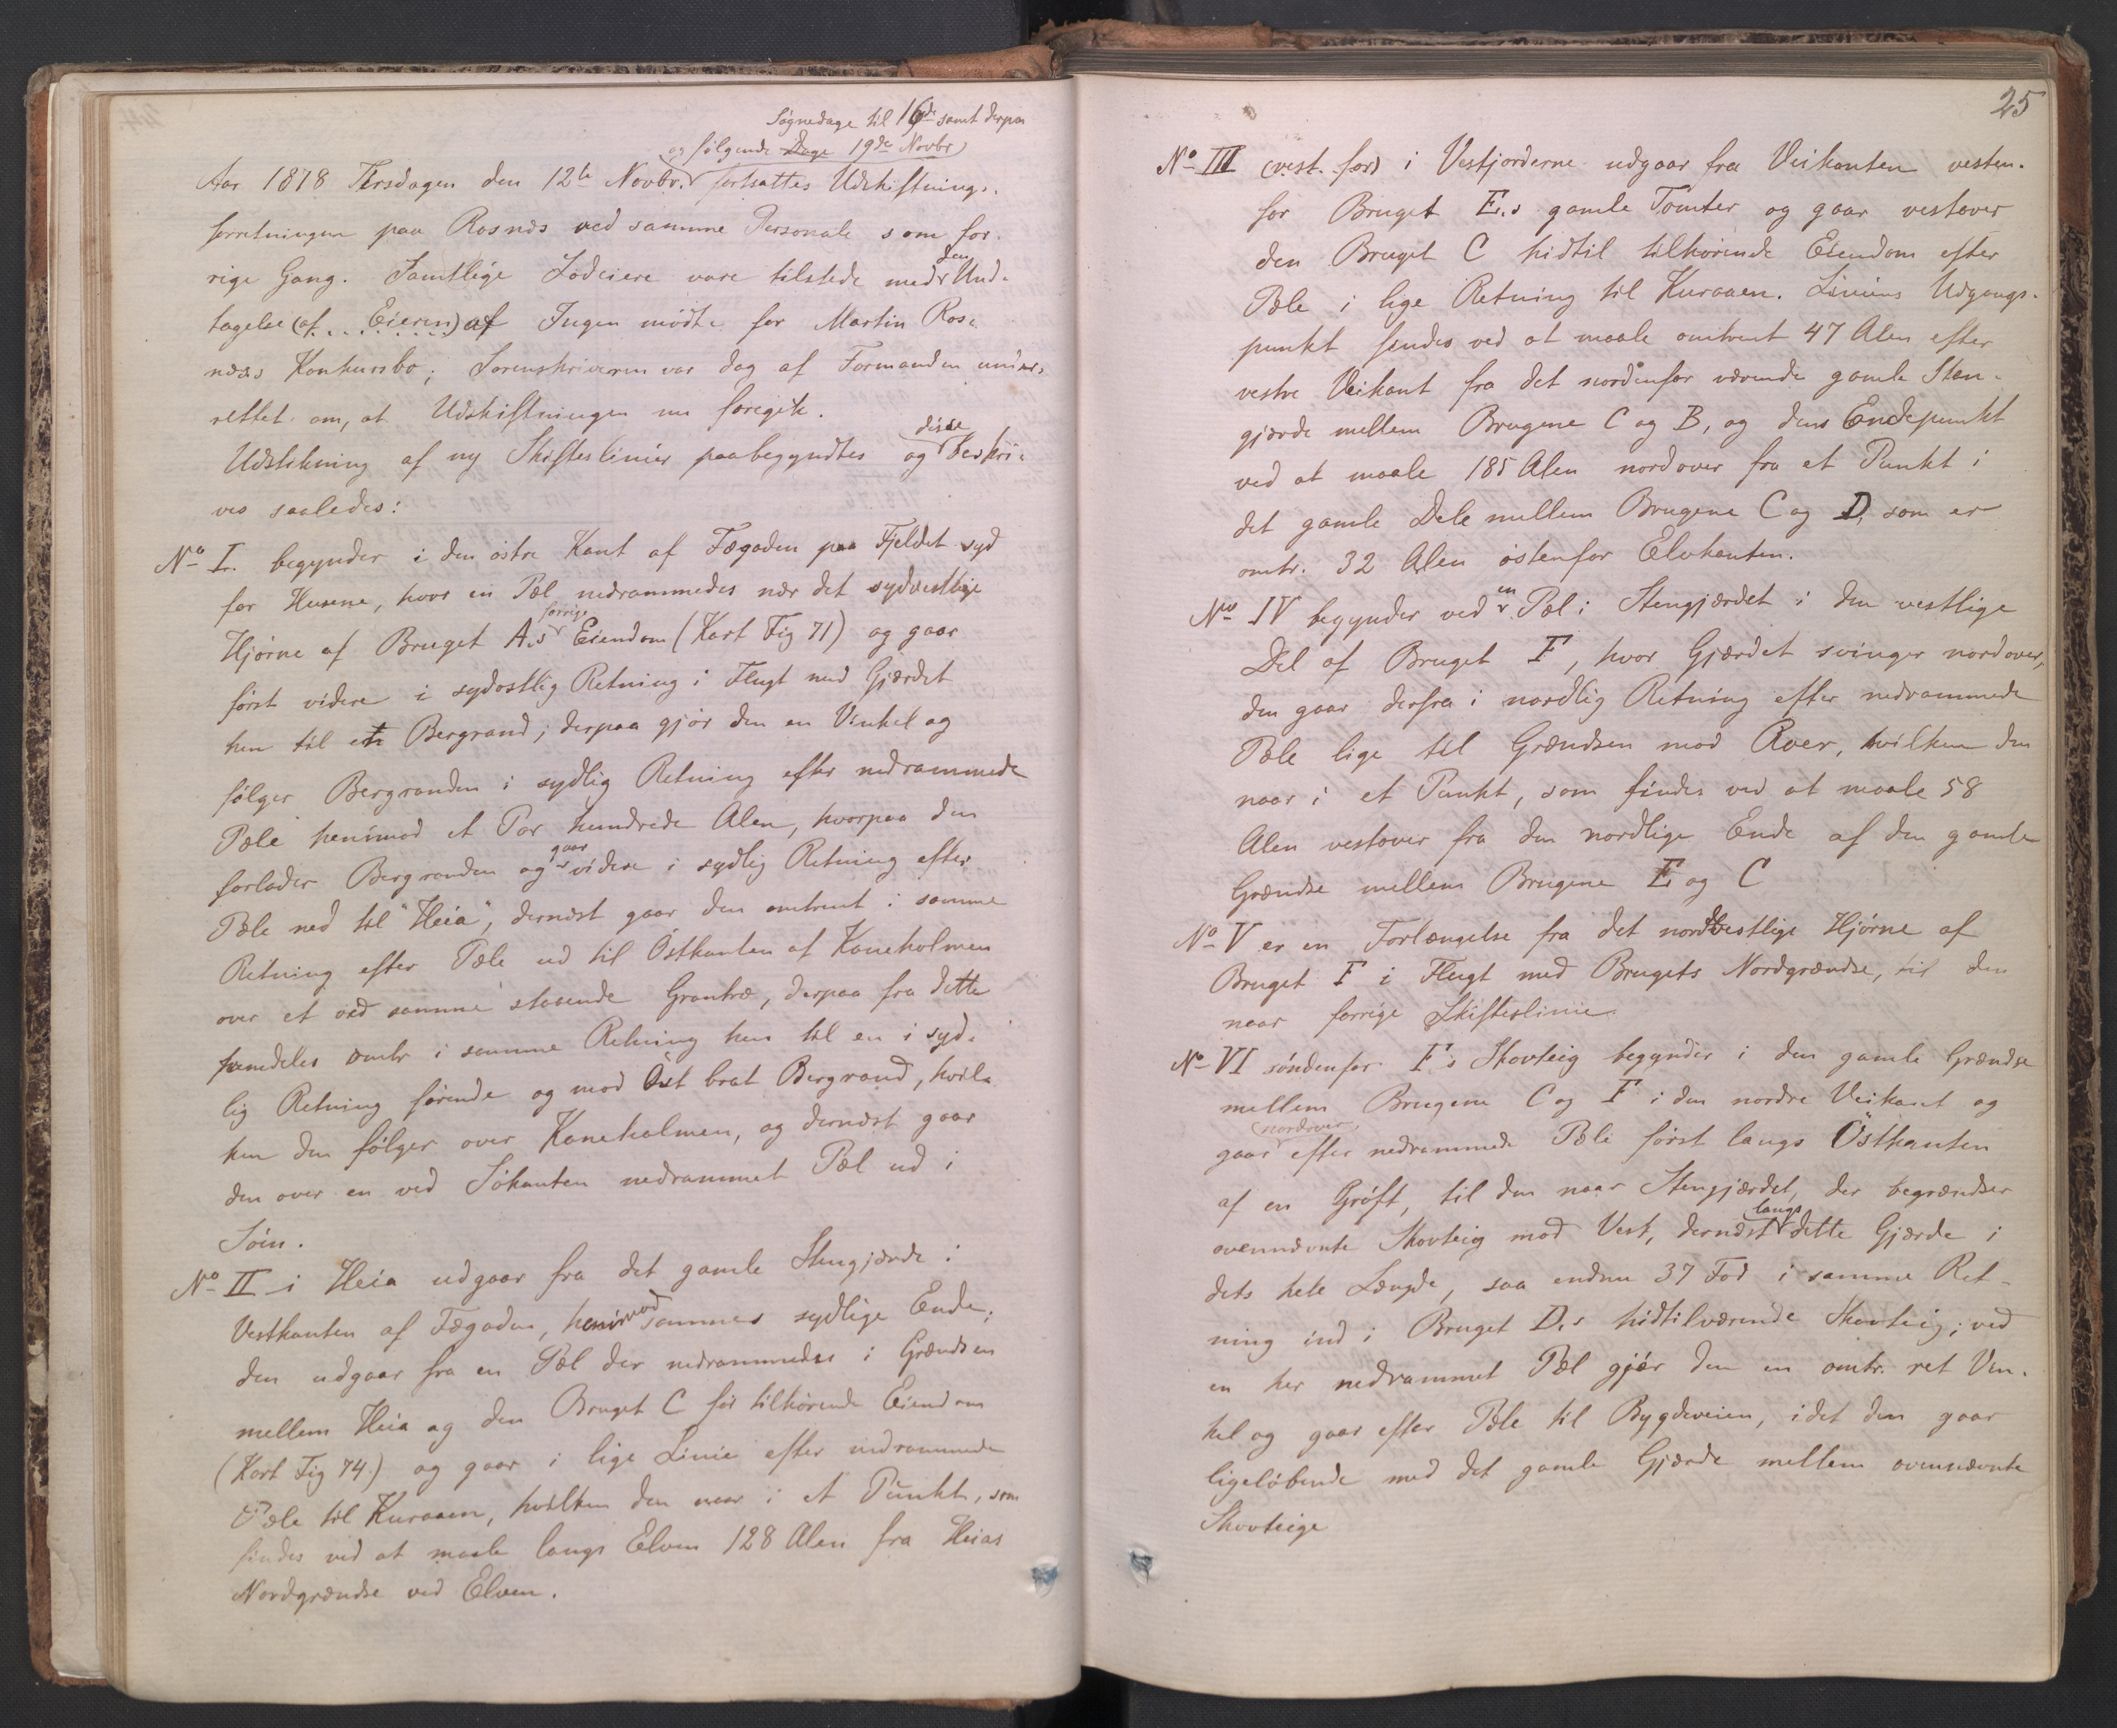 Søgnedage til 16de samt derpaa
og følgende Dage 19de Novbr
Aar 1878 Tirsdagen den 12te Novbr. fortsattes Udskiftnings-
forretningen paa Rosnæs ved samme Personale som for-
rige Gang. Samtlige Lodeiere vare tilstede med den Und-
tagelse (af . . . Eieren) at Ingen mødte for Martin Ros-
næs Konkursbo; Sorenskriveren var dog af Formanden under-
rettet om, at Udskiftningen nu foregik.
Udstikning af ny Skifteslinier paabegyndtes og disse beskri-
ves saaledes:
No I. begynder i den østre Kant af Fægaden paa Fjeldet syd
for Husene, hvor en Pæl nedrammedes nær det sydvestlige
Hjørne af Bruget A.s forrige Eiendom (Kart Fig 71) og gaar
først videre i sydostlig Retning i Flugt med Gjærdet
hen til et Bergrand; derpaa gjør den en Vinkel og
følger Bergranden i sydlig Retning efter nedrammede
Pæle henimod et Par hundrede Alen, hvorpaa den
forlader Bergranden og gaar videre i sydlig Retning efter
Pæle ned til "Heia", dernæst gaar den omtrent i samme
Retning efter Pæle ud til Østkanten af Kaneholmen
over et ved samme staaende Grantræ, derpaa fra dette
fremdeles omtr i samme Retning hen til en i syd-
lig Retning førende og mod Øst brat Bergrand, hvil-
ken den følger over Kaneholmen, og dernæst gaar
den over en ved Søkanten nedrammet Pæl ud i
Søen.
No II i Heia udgaar fra det gamle Stengjærde i
Vestkanten af Fægaden, henimod sammes sydlige Ende;
den udgaar fra en Pæl der nedrammedes i Grændsen
mellem Heia og den Bruget C før tilhørende Eiendom
(Kart Fig 74.) og gaar i lige Linie efter nedrammede
Pæle til Kuraaen, hvilken den naar i et Punkt, som
findes ved at maale langs Elven 128 Alen fra Heias
Nordgrændse ved Elven.
25
No III (vest. for) i Vestjorderne udgaar fra Veikanten vesten-
for Bruget E.s gamle Tomter og gaar vestover
den Bruget C hidtil tilhørende Eiendom efter
Pæle i lige Retning til Kuraaen. Liniens Udgangs-
punkt findes ved at maale omtrent 47 Alen efter
vestre Veikant fra det nordenfor værende gamle Sten-
gjærde mellem Brugene C og B, og dens Endepunkt
ved at maale 185 Alen nordover fra et Punkt i
det gamle Dele mellem Brugene C og D, som er
omtr. 32 Alen østenfor Elvkanten.
No IV begynder ved en Pæl i Stengjærdet i den vestlige
Del af Bruget F, hvor Gjærdet svinger nordover,
den gaar derfra i nordlig Retning efter nedrammede
Pæle lige til Grændsen mod Røer, hvilken den
naar i et Punkt, som findes ved at maale 58
Alen vestover fra den nordlige Ende af den gamle
Grændse mellem Brugene E og C
No V er en Forlængelse fra det nordvestlige Hjørne af
Bruget F i Flugt med Brugets Nordgrændse, til den
naar forrige Skifteslinie.
No VI søndenfor F.s Skovteig begynder i den gamle Grændse
mellem Brugene C og F i den nordre Veikant og
gaar (nordover) efter nedrammede Pæle først langs Østkanten
af en Grøft, til den naar Stengjærdet, der begrændser
ovennævnte Skovteig mod Vest, dernæst langs dette Gjærde i
dets hele Længde, saa endnu 37 Fod i samme Ret-
ning ind i Bruget D.s hidtilværende Skovteig; ved
en her nedrammet Pæl gjør den en omtr. ret Vin-
kel og gaar efter Pæle til Bygdeveien, idet den gaar
ligeløbende med det gamle Gjærde mellem ovennævnte
Skovteige